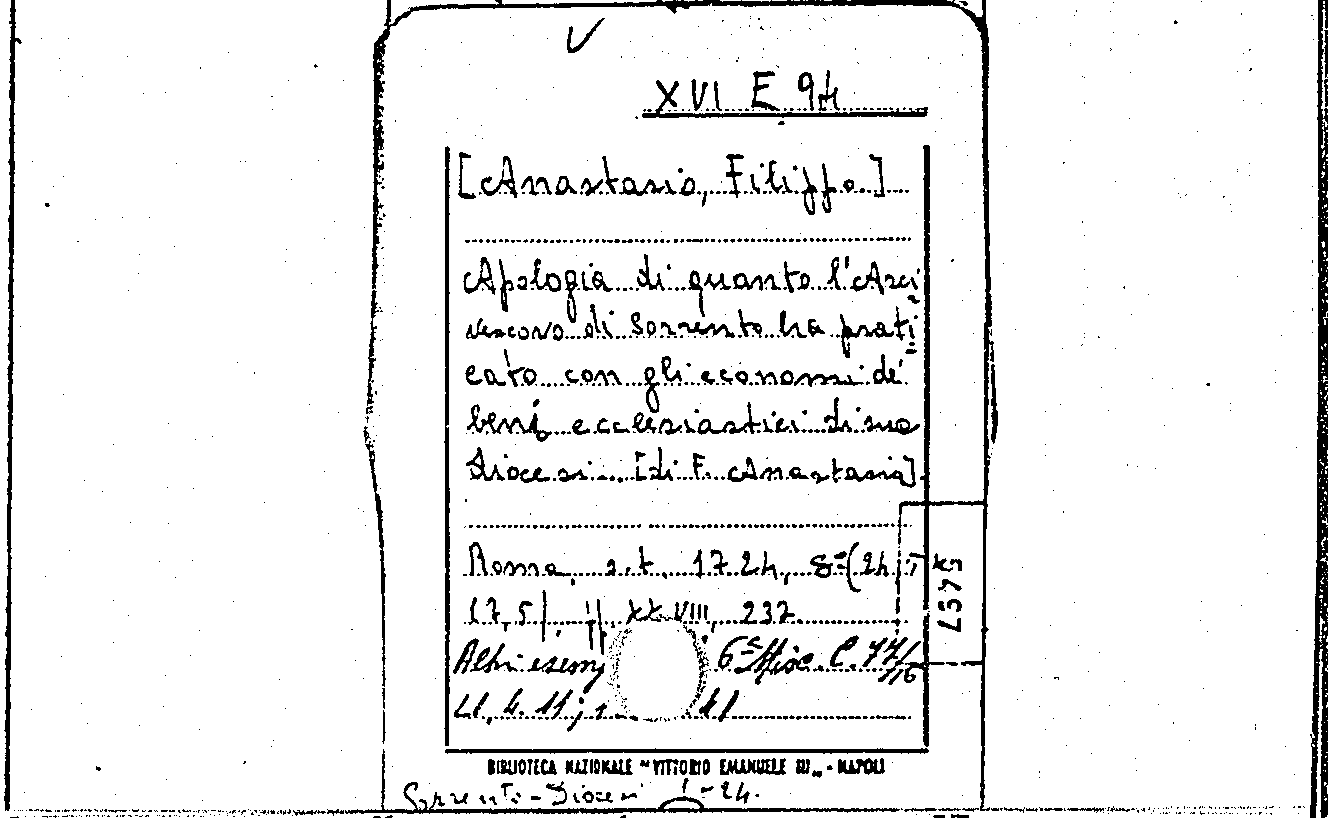 XVI E 94
[Anastasio, Filippo.]
Apologia di quanto l'Arci
vescovo di Sorrento ha prati
cato con gli economi de'
beni ecclesiastici di sua
Diocesi... [di F. Anastasio].
Roma, s.t. 1724, 8º (24
17,5), pp. XXVIII, 237.
Altri esemp 6ª Misc. C. 74/16
LI, 4. 11; 41
BIBLIOTECA NAZIONALE "VITTORIO EMANUELE III" - NAPOLI
Sorrento - Diocesi 1-24.